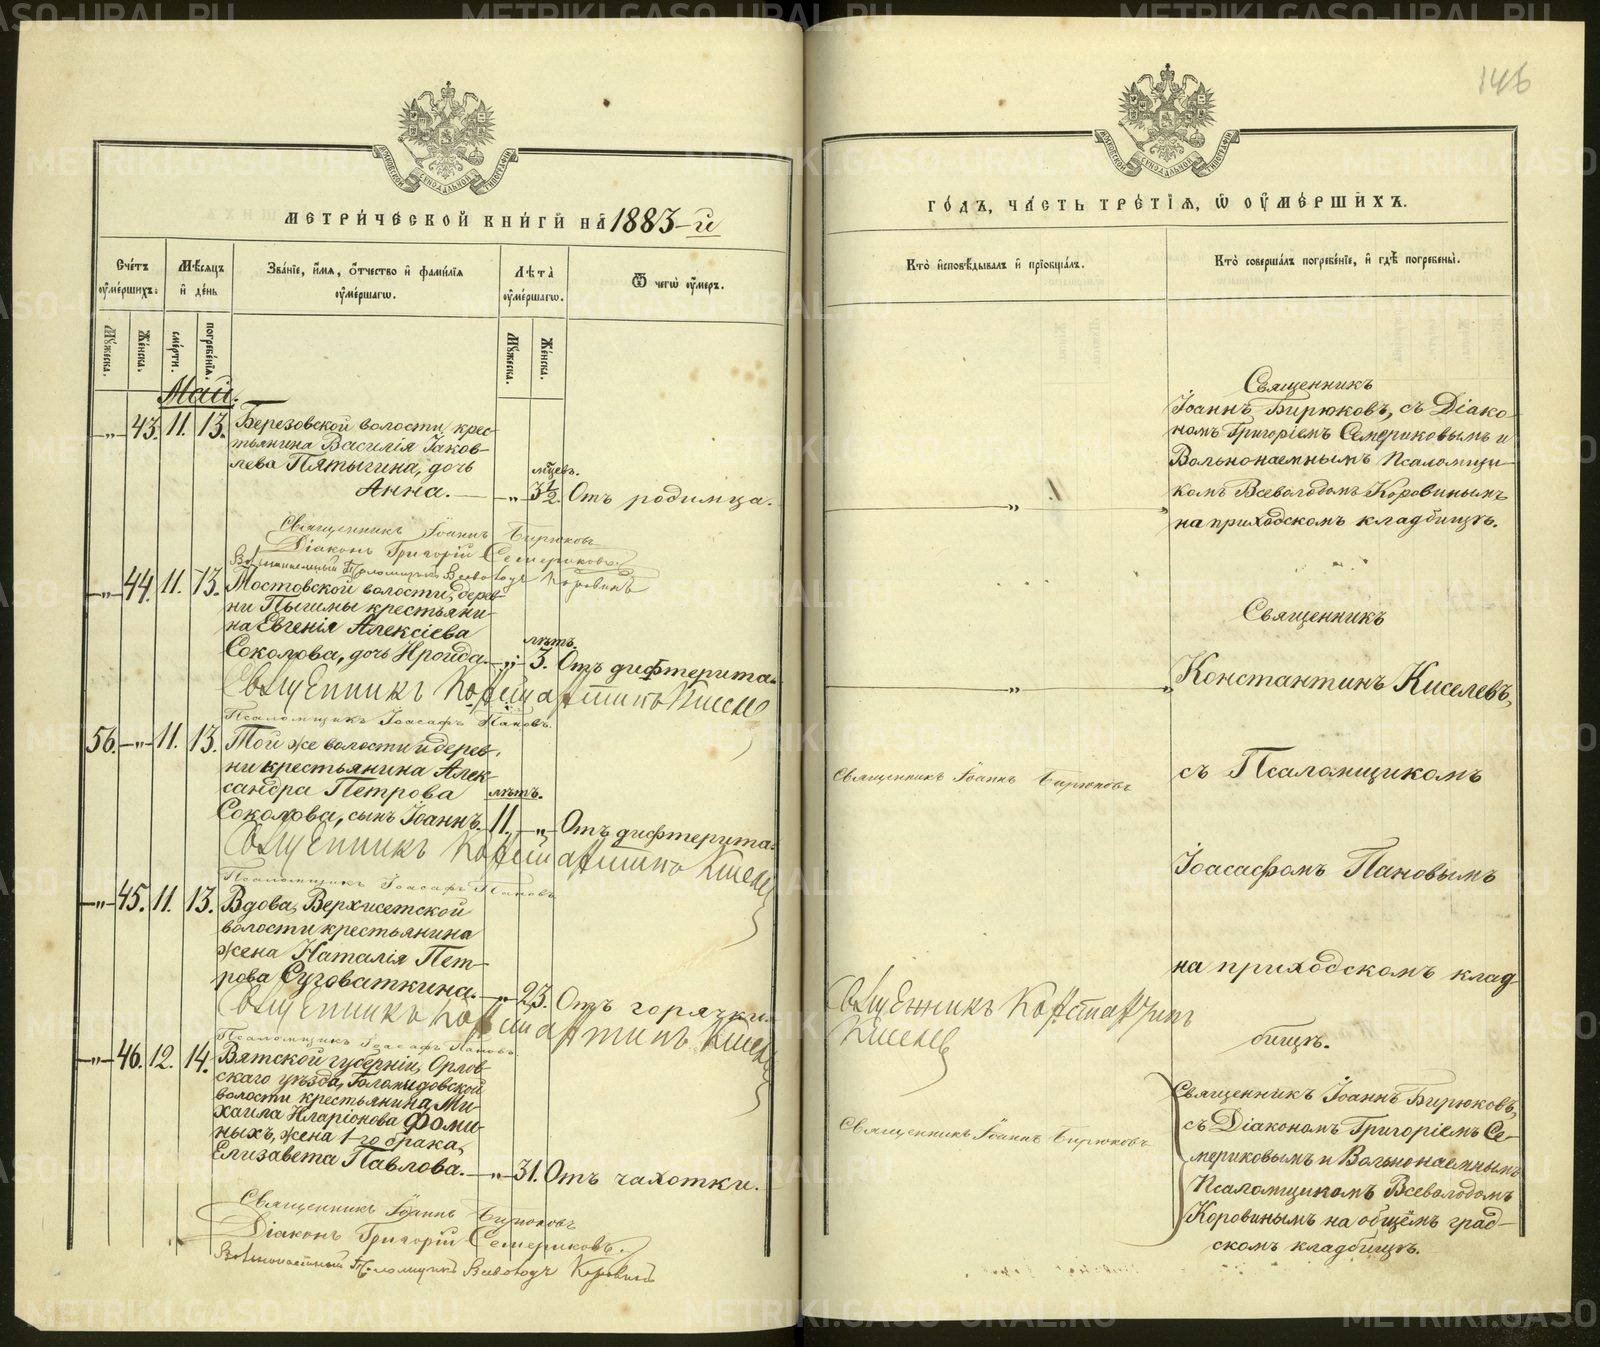 МЕТРИ́ЧЕСКОЙ КНИ́ГИ НА 1883-й
Счётъ ᲂу҆ме́ршихъ:
Мѣ́сяцъ и҆ де́нь
Зва́нїе, и҆́мя, ѻ҆́тчество и҆ фами́лїя ᲂу҆ме́ршагѡ.
Лѣ́та ᲂу҆ме́ршагѡ.
Ѿ чегѡ̀ ᲂу҆́меръ.
Мꙋ́жеска.
Же́нска.
сме́рти.
погребе́нїя.
Мꙋ́жеска.
Же́нска.
Май.
-„- 43. 11. 13. Березовской волости, крес-
тьянина Василія Іаков-
лева Пятыгина, дочь
мѣсцевъ.
Анна. -„- 3½. Отъ родимца.
Священникъ Іоаннъ Бирюковъ
Діаконъ Григорій Семериковъ.
Вольнонаемный Псаломщикъ Всеволодъ Коровинъ
-„- 44. 11. 13. Мостовской волости, дерев-
ни Пышмы крестьяни-
на Евгенія Алексіева
лѣтъ.
Соколова, дочь Ироида. -„- 3. Отъ дифтерита.
Священникъ Константинъ Киселев
Псаломщикъ Іоасафъ Пановъ.
56. -„- 11. 13. Той же волости и дерев-
ни крестьянина Алек-
сандра Петрова
лѣтъ.
Соколова, сынъ Іоаннъ. 11. -„- Отъ дифтерита.
Священникъ Константинъ Киселев
Псаломщикъ Іоасафъ Пановъ
-„- 45. 11. 13. Вдова, Верхисетской
волости крестьянина
жена Наталія Пет-
рова Суговаткина. -„- 23. Отъ горячки.
Священникъ Константинъ Киселев
Псаломщикъ Іоасафъ Пановъ
-„- 46. 12. 14. Вятской губерніи, Орлов-
скаго уѣзда,
волости крестьянина Ми-
хаила Иларіонова Фоми-
ныхъ, жена 1-го брака,
Елизавета Павлова. -„- 31. Отъ чахотки.
Священникъ Іоаннъ Бирюковъ
Діаконъ Григорій Семериковъ.
Вольнонаемный Псаломщикъ Всеволодъ Коровинъ
146
ГО́ДЪ, ЧА́СТЬ ТРЕ́ТЇЯ, Ѿ ОУ҆МЕ́РШИХЪ.
Кто̀ и҆сповѣ́дывалъ и҆ прїѻбща́лъ.
Кто̀ соверша́лъ погребе́нїе, и҆ гдѣ̀ погребены̀.
Священникъ
Іоаннъ Бирюковъ, съ Діако-
номъ Григоріемъ Семериковымъ и
Вольнонаемнымъ Псаломщи-
комъ Всеволодомъ Коровинымъ
на приходскомъ кладбищѣ.
Священникъ
Константинъ Киселевъ,
Священникъ Іоаннъ Бирюковъ
съ Псаломщикомъ
Іоасафомъ Пановымъ
на приходскомъ клад-
Священникъ Константинъ
Киселев
бищѣ.
Священникъ Іоаннъ Бирюковъ
Священникъ Іоаннъ Бирюковъ,
съ Діакономъ Григоріемъ Се-
мериковымъ и Вольнонаемнымъ
Псаломщикомъ Всеволодомъ
Коровинымъ на общемъ град-
скомъ кладбищѣ.
METRIKI.GASO-URAL.RU